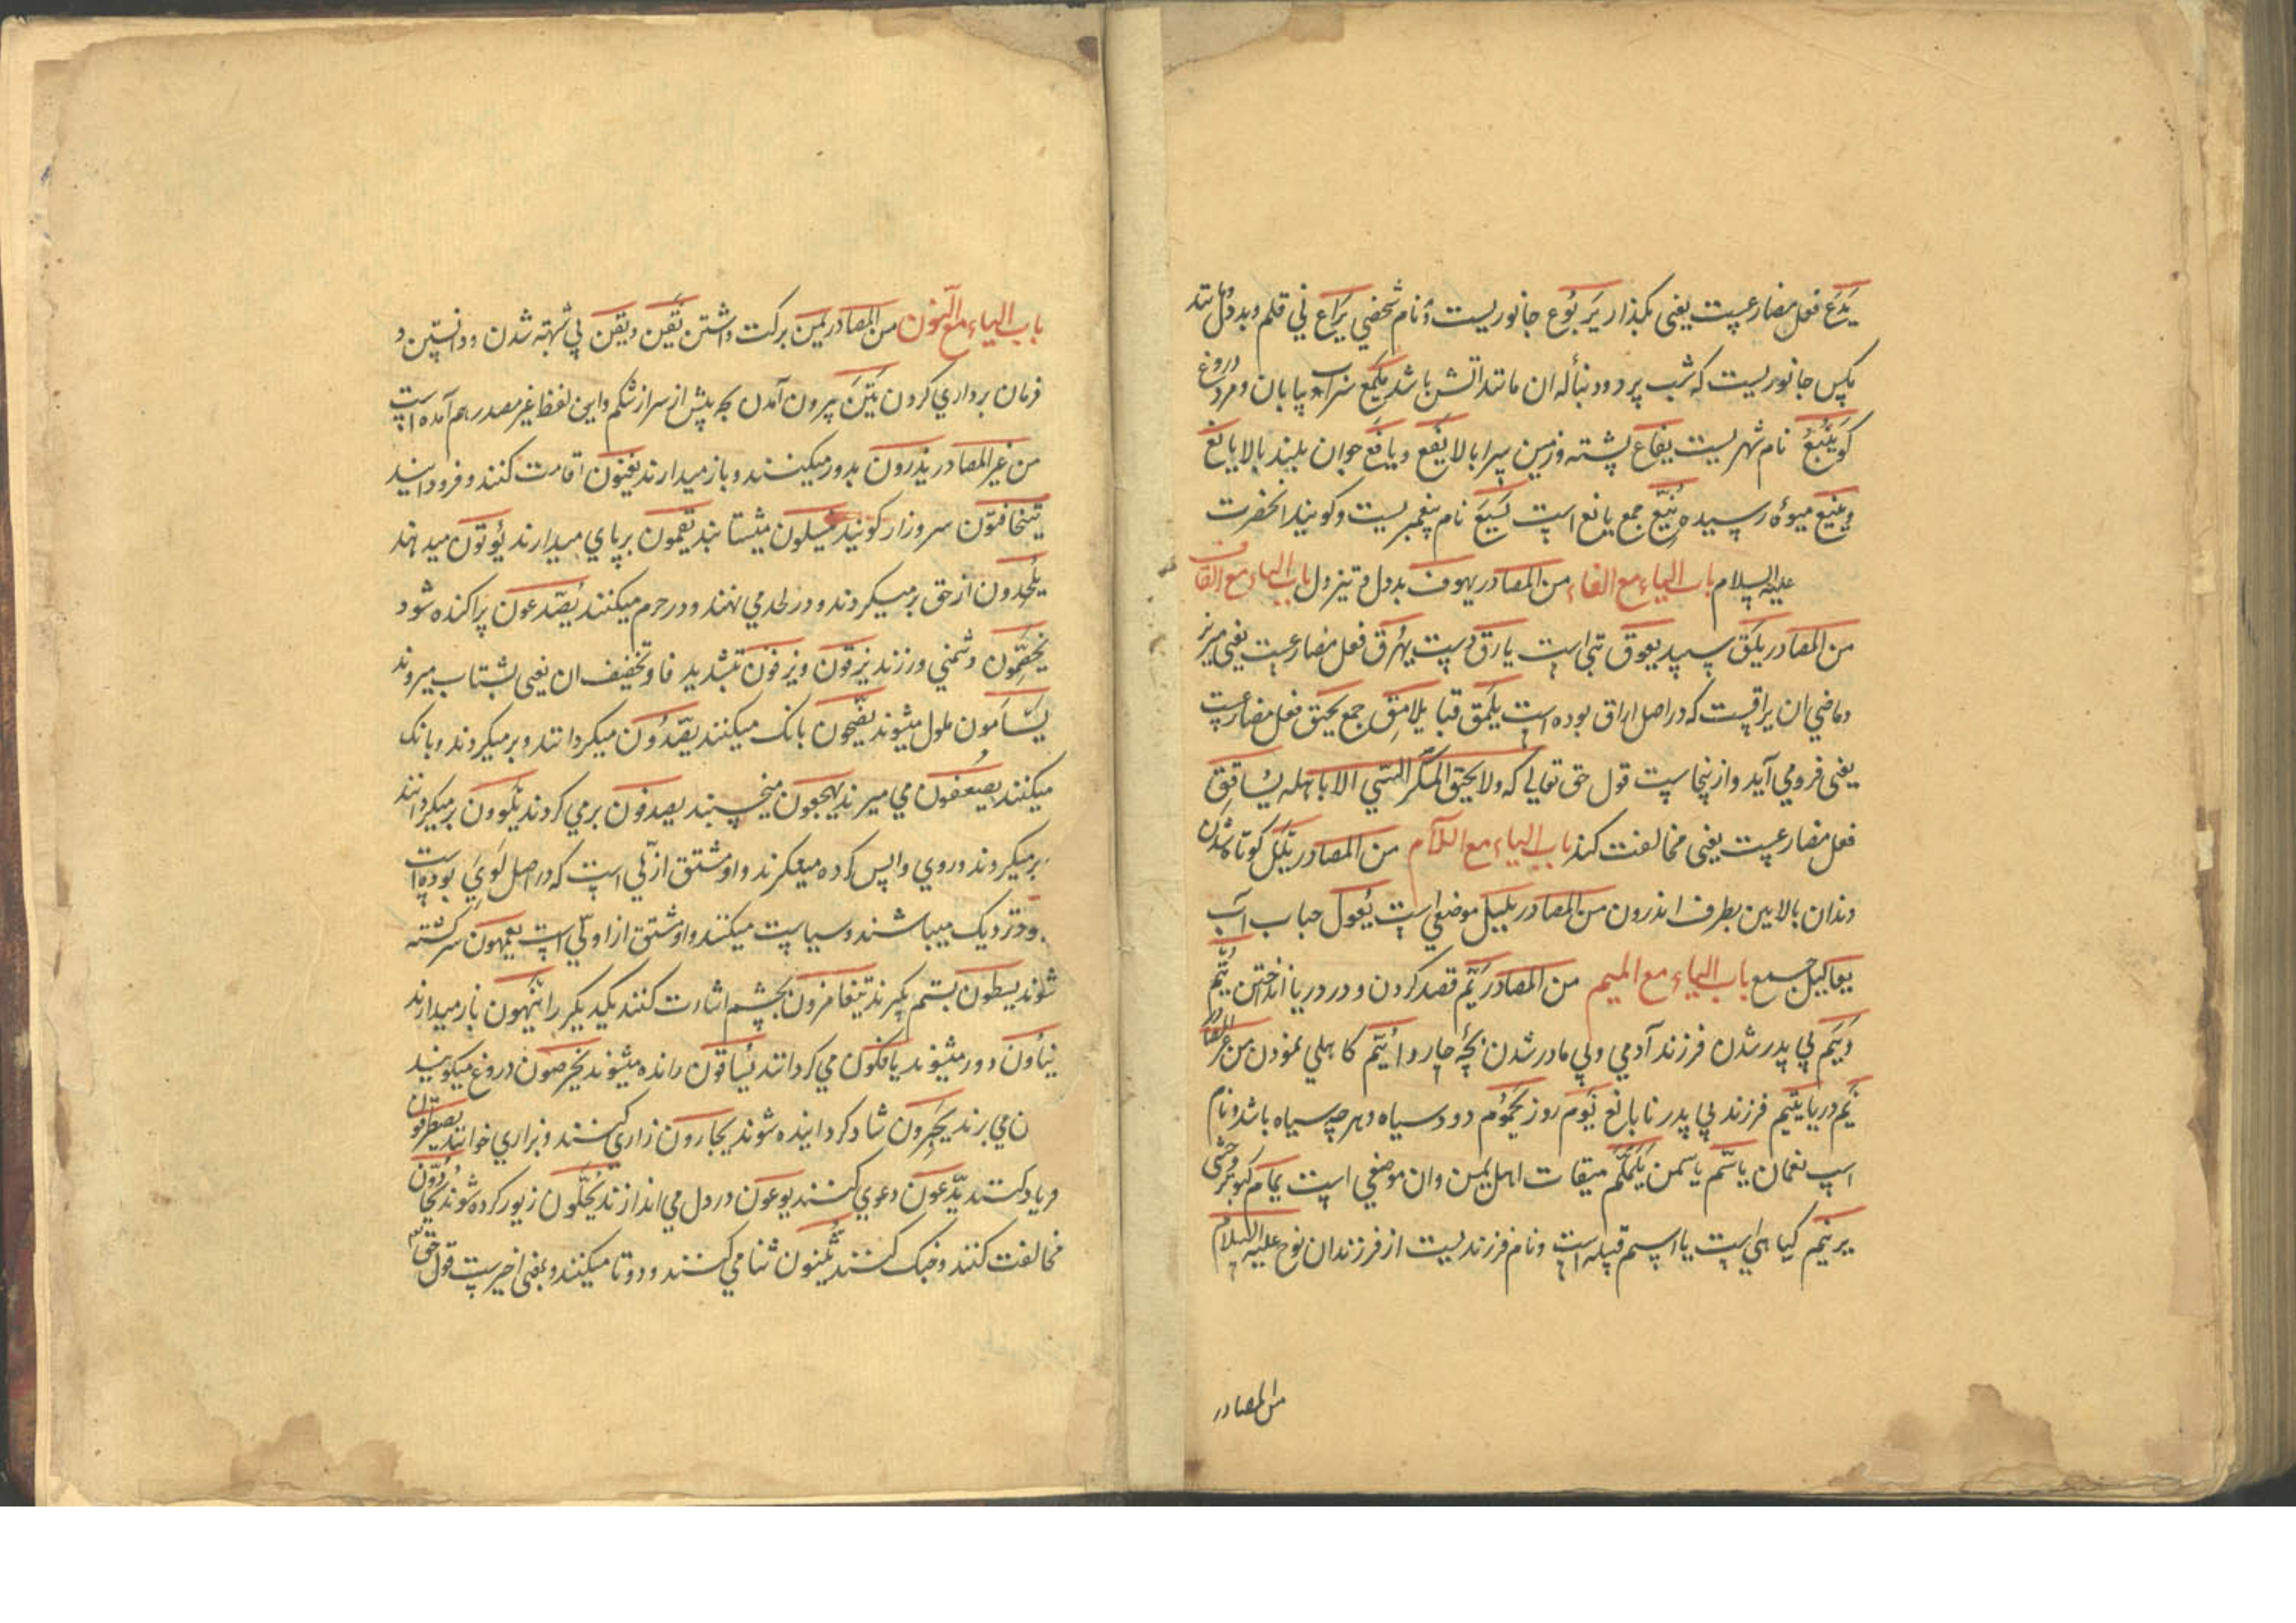 یَدَع فعل مضارعست یعنی بکذارد یَربُوع جانوریست و نام شخصی یَراع نی قلم و بددل و مانند
مکس جانوریست که شب پرد و دنبأله ان مانند اتش باشد یَلمَع سراب و بیابان و مرد دروغ
کو یَنبُع نام شهریست یفاع پشته و زمین سرابالا یَفَع و یافع جوان بلند بالا یانع
و ینیع میوهٔ رسیده یُنَّع جمع یانع است یَسَع نام پیغمبریست و کویند انحضرت
علیه السلام باب الیاء مع الفاء من المصادر یهوف بددل و تیزدل باب الیاء مع القاف
من المصادر یَلَق سپید یعوق بتی است یارق دست یُهرق فعل مضارعست یعنی میریزد
و ماضی ان یراقست که در اصل اراق بوده است یَلمَق قبا یلامق جمع یحیق فعل مضارعست
یعنی فرومی آید و از ینجاست قول حق تعالی که ولا یحیق المکر السّیّی الا باهله یُشاقِق
فعل مضارعست یعنی مخالفت کند باب الیاء مع اللآم من المصادر یَلَل کوتاه شدن
دندان بالایین بطرف اندرون من المصادر یَلیَل موضعی است یُعلول حباب آب
یعالیل جمع باب الیاء مع المیم من المصادر یَمّ قصد کردن و در دریا انداختن یُتم
و یَتَم بی پدر شدن فرزند آدمی و بی مادر شدن بچهٔ چاروا یُتَم کاهلی نمودن من غیر المصادر
یَم دریا یتیم فرزند بی پدر نابالغ یَوم روز یَحمُوم دود سیاه و هر چه سیاه باشد و نام
اسپ نعمان یاسَم یاسمن یَلَملَم میقات اهل یمن و ان موضعی است یمام کبوتر وحشی
یرنیم کیاهی است یا اسم قبیله است و نام فرزندیست از فرزندان نوح علیه السلام
من المصادر
باب الیاء مع النّون من المصادر یُمن برکت داشتن یَقَین و یقین بی شبهه شدن و دانستن و
فرمان برداری کردن یَتَن بیرون آمدن بچه پیش از سر از شکم و این لفظ غیر مصدر هم آمده است
من غیر المصادر یذرون بدور میکنند و باز میدارند یغنون اقامت کنند و فرود ایند
یَتَخافَتون سر و زار کویند ینسلون میشتابند یقیمون برپای میدارند یُوتون میدهند
یُلحِدون از حق برمیکردند و در لحد می نهند و در حرم میکنند یَصَّدعون پراکنده شود
یَخصِّمُون دشمنی ورزند یَزِفّون و یزفون بتشدید فا و تخفیف ان یعنی بشتاب میروند
یَسأمون ملول میشوند یَضِجّون بانک میکنند یصُدّون میکردانند و برمیکردند و بانک
میکنند یصعقون می میرند یَهجعون میخسپند یصدفون برمی کردند یلوون برمیکردانند
برمیکردند و روی واپس کرده مینکرند و او مشتق از لَی است که در اصل لَویَ بوده است
و نزدیک میباشند و سیاست میکنند و او مشتق از اولی است یعمهون سرکشته
شوند یسطون بستم بکیرند یتغامزون بچشم اشارت کنند یکدیکر را ینهون باز میدارند
ینأون دور میشوند یافکون می کردانند یُساقون رانده میشوند یخرصون دروغ میکویند
ن می برند یحبرون شاد کردانیده شوند یجارون زاری کنند و بزاری خوانند یصطرخون
فریاد کنند یدّعون دعوی کنند یوعون در دل می اندازند یُحَلّون زیور کرده شوند یحادّون
مخالفت کنند و جنک کنند یثنون ثنا می کنند و دوتا میکنند و بمعنی اخیرست قول حق تع